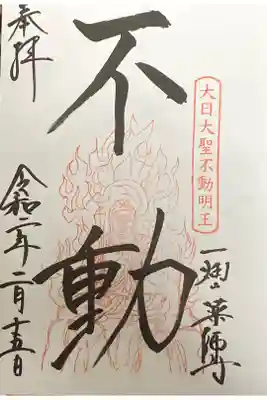 奉拝
大日大聖不動明王
不動
一畑山薬師寺
令和二年二月十五日